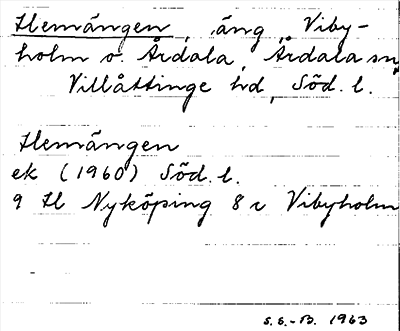 Hemängen, äng, Viby-
holm o. Årdala, Årdala sn,
Villåttinge hd, Söd. l.
Hemängen
ek (1960) Söd. l.
9 H Nyköping 8 c Vibyholm
S.S.-B. 1963